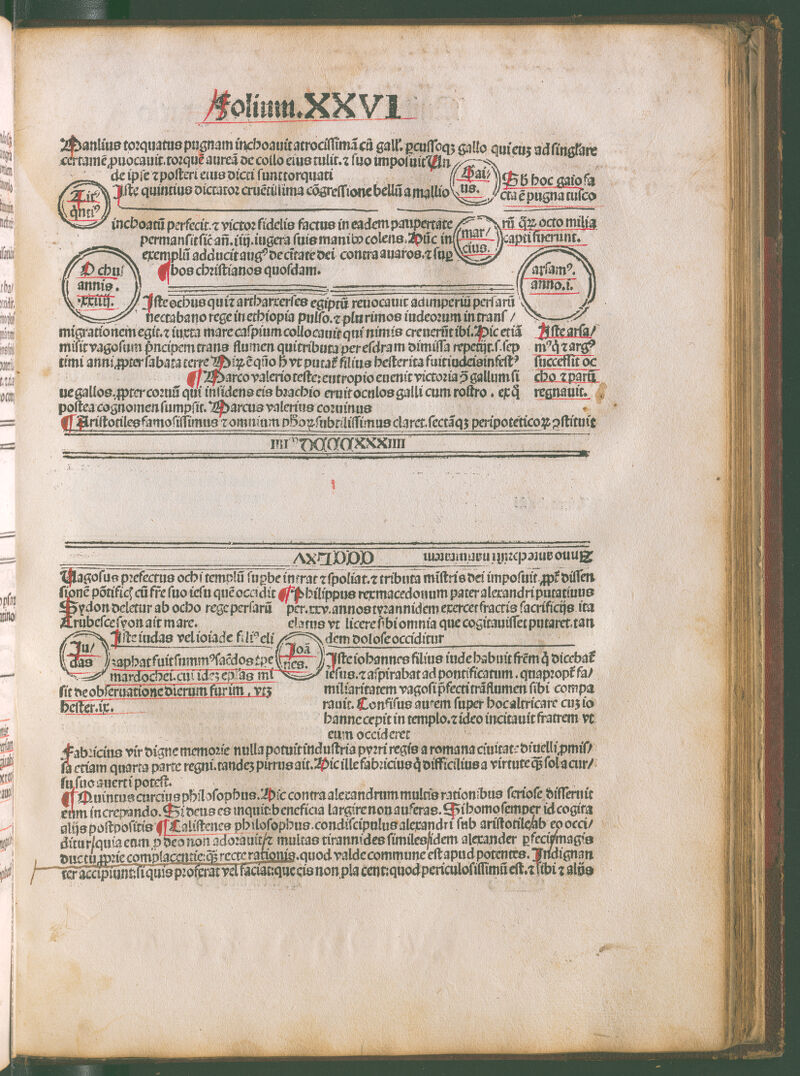 Folium.XXVI
Manlius torquatus pugnam inchoauit atrocissimā cū gall'. ꝑcussoqꝫ gallo qui euꝫ ad singl'are
certamē ꝓuocauit. torquē aureā de collo eius tulit. ⁊ suo imposuit Un
de ipse ⁊ posteri eius dicti sunt torquati
Gai/
us.
Sb hoc gaio fa
cta ē pugna tusco
Tit⁹
qnti⁹
Iste quintius dictator cruētissima cōgressione bellū a mallio
inchoatū perfecit. ⁊ victor fidelis factus in eadem paupertate
permansit sic an. .iiij. iugera suis manib⁹ colens. Nūc in
exemplū adducit aug⁹ de citate dei contra auaros. ⁊ suꝑ
bos christianos quosdam.
mar/
cius.
rū qꝝ octo milia
capti fuerunt.
Ochu/
annis.
.xxiiij.
arsam⁹.
anno.i.
Iste ochus qui ⁊ artharxerses egiptū reuocauit ad imperiū persarū
nectabano rege in ethiopia pulso. ⁊ plurimos iudeorum in trans/
migrationem egit. ⁊ iuxta mare caspium collocauit qui nimis creuerūt ibi. Hic etiā
misit vagosum pncipem trans flumen qui tributa per esdram dimissa repetijt. s. sep
timi anni. ꝓpter sabata terre
hesterita fuit iudeis infest⁹
Iste arsa/
m⁹ q ⁊ arg⁹
successit oc
cho ⁊ parū
regnauit.
Marco valerio teste: eutropio euenit victoria ꝯ gallum si
ue gallos. ꝓpter coruū qui insidens eis brachio eruit oculos galli cum rostro . ex q
postea cognomen sumpsit. Marcus valerius coruinus
Aristotiles famosissimus ⁊ omnium phoꝝ subtilissimus claret. sectāqꝫ peripoteticoꝝ ꝯstituit
IIII DCCCCXXXIIII
Anno ante christi natiuitatem CCCLXV
Vagosus prefectus ochi templū suꝑbe intrat ⁊ spoliat. ⁊ tributa mistris dei imposuit ꝓpt dissen
sionē pōtific cū fre suo iesu quē occidit
Sydon deletur ab ocho rege persarū
Erubesce syon ait mare.
Philippus rex macedonum pater alexandri putatiuus
per .xxv. annos tyrannidem exercet fractis sacrificijs ita
elatus vt licere sibi omnia que cogitauisset putaret. tan
dem dolose occiditur
Ju/
das
Iste iudas vel ioiade fili⁹ eli
zaphat fuit summ⁹ sacdos tpe
mardochei. cui idez epl'as mi
sit de obseruatione dierum furim . vtꝫ
hester .ix.
Joā
nes.
Iste iohannes filius iude habuit frēm q dicebat
iesus. ⁊ aspirabat ad pontificatum . quapropt fa/
miliaritatem vagosi pfecti trāflumen sibi compa
rauit. Confisus autem super hoc altricare cuꝫ io
hanne cepit in templo. ⁊ ideo incitauit fratrem vt
eum occideret
Fabricius vir digne memorie nulla potuit industria pyrri regis a romana ciuitate diuelli ꝓmis/
sa etiam quarta parte regni. tandeꝫ pirrus ait. Hic ille fabricius q difficilius a virtute qꝫ sol a cur/
su suo auerti potest.
Quintus curcius philosophus. Hic contra alexandrum multis rationibus seriose disseruit
eum increpando. Si deus es inquit: beneficia largire non auferas. Si homo semper id cogita
alijs postpositis Calistenes philosophus. condiscipulus alexandri sub aristotile ab eo occi/
ditur/quia eum ꝓ deo non adorauit/⁊ multas tirannides similes idem alexander ꝑfecit/magis
ductu ꝓprie complacentie: qꝫ recte rationis. quod valde commune est apud potentes. Indignan
ter accipiunt: si quis proferat vel faciat: que eis non placent: quod periculosissimū est. ⁊ sibi ⁊ alijs